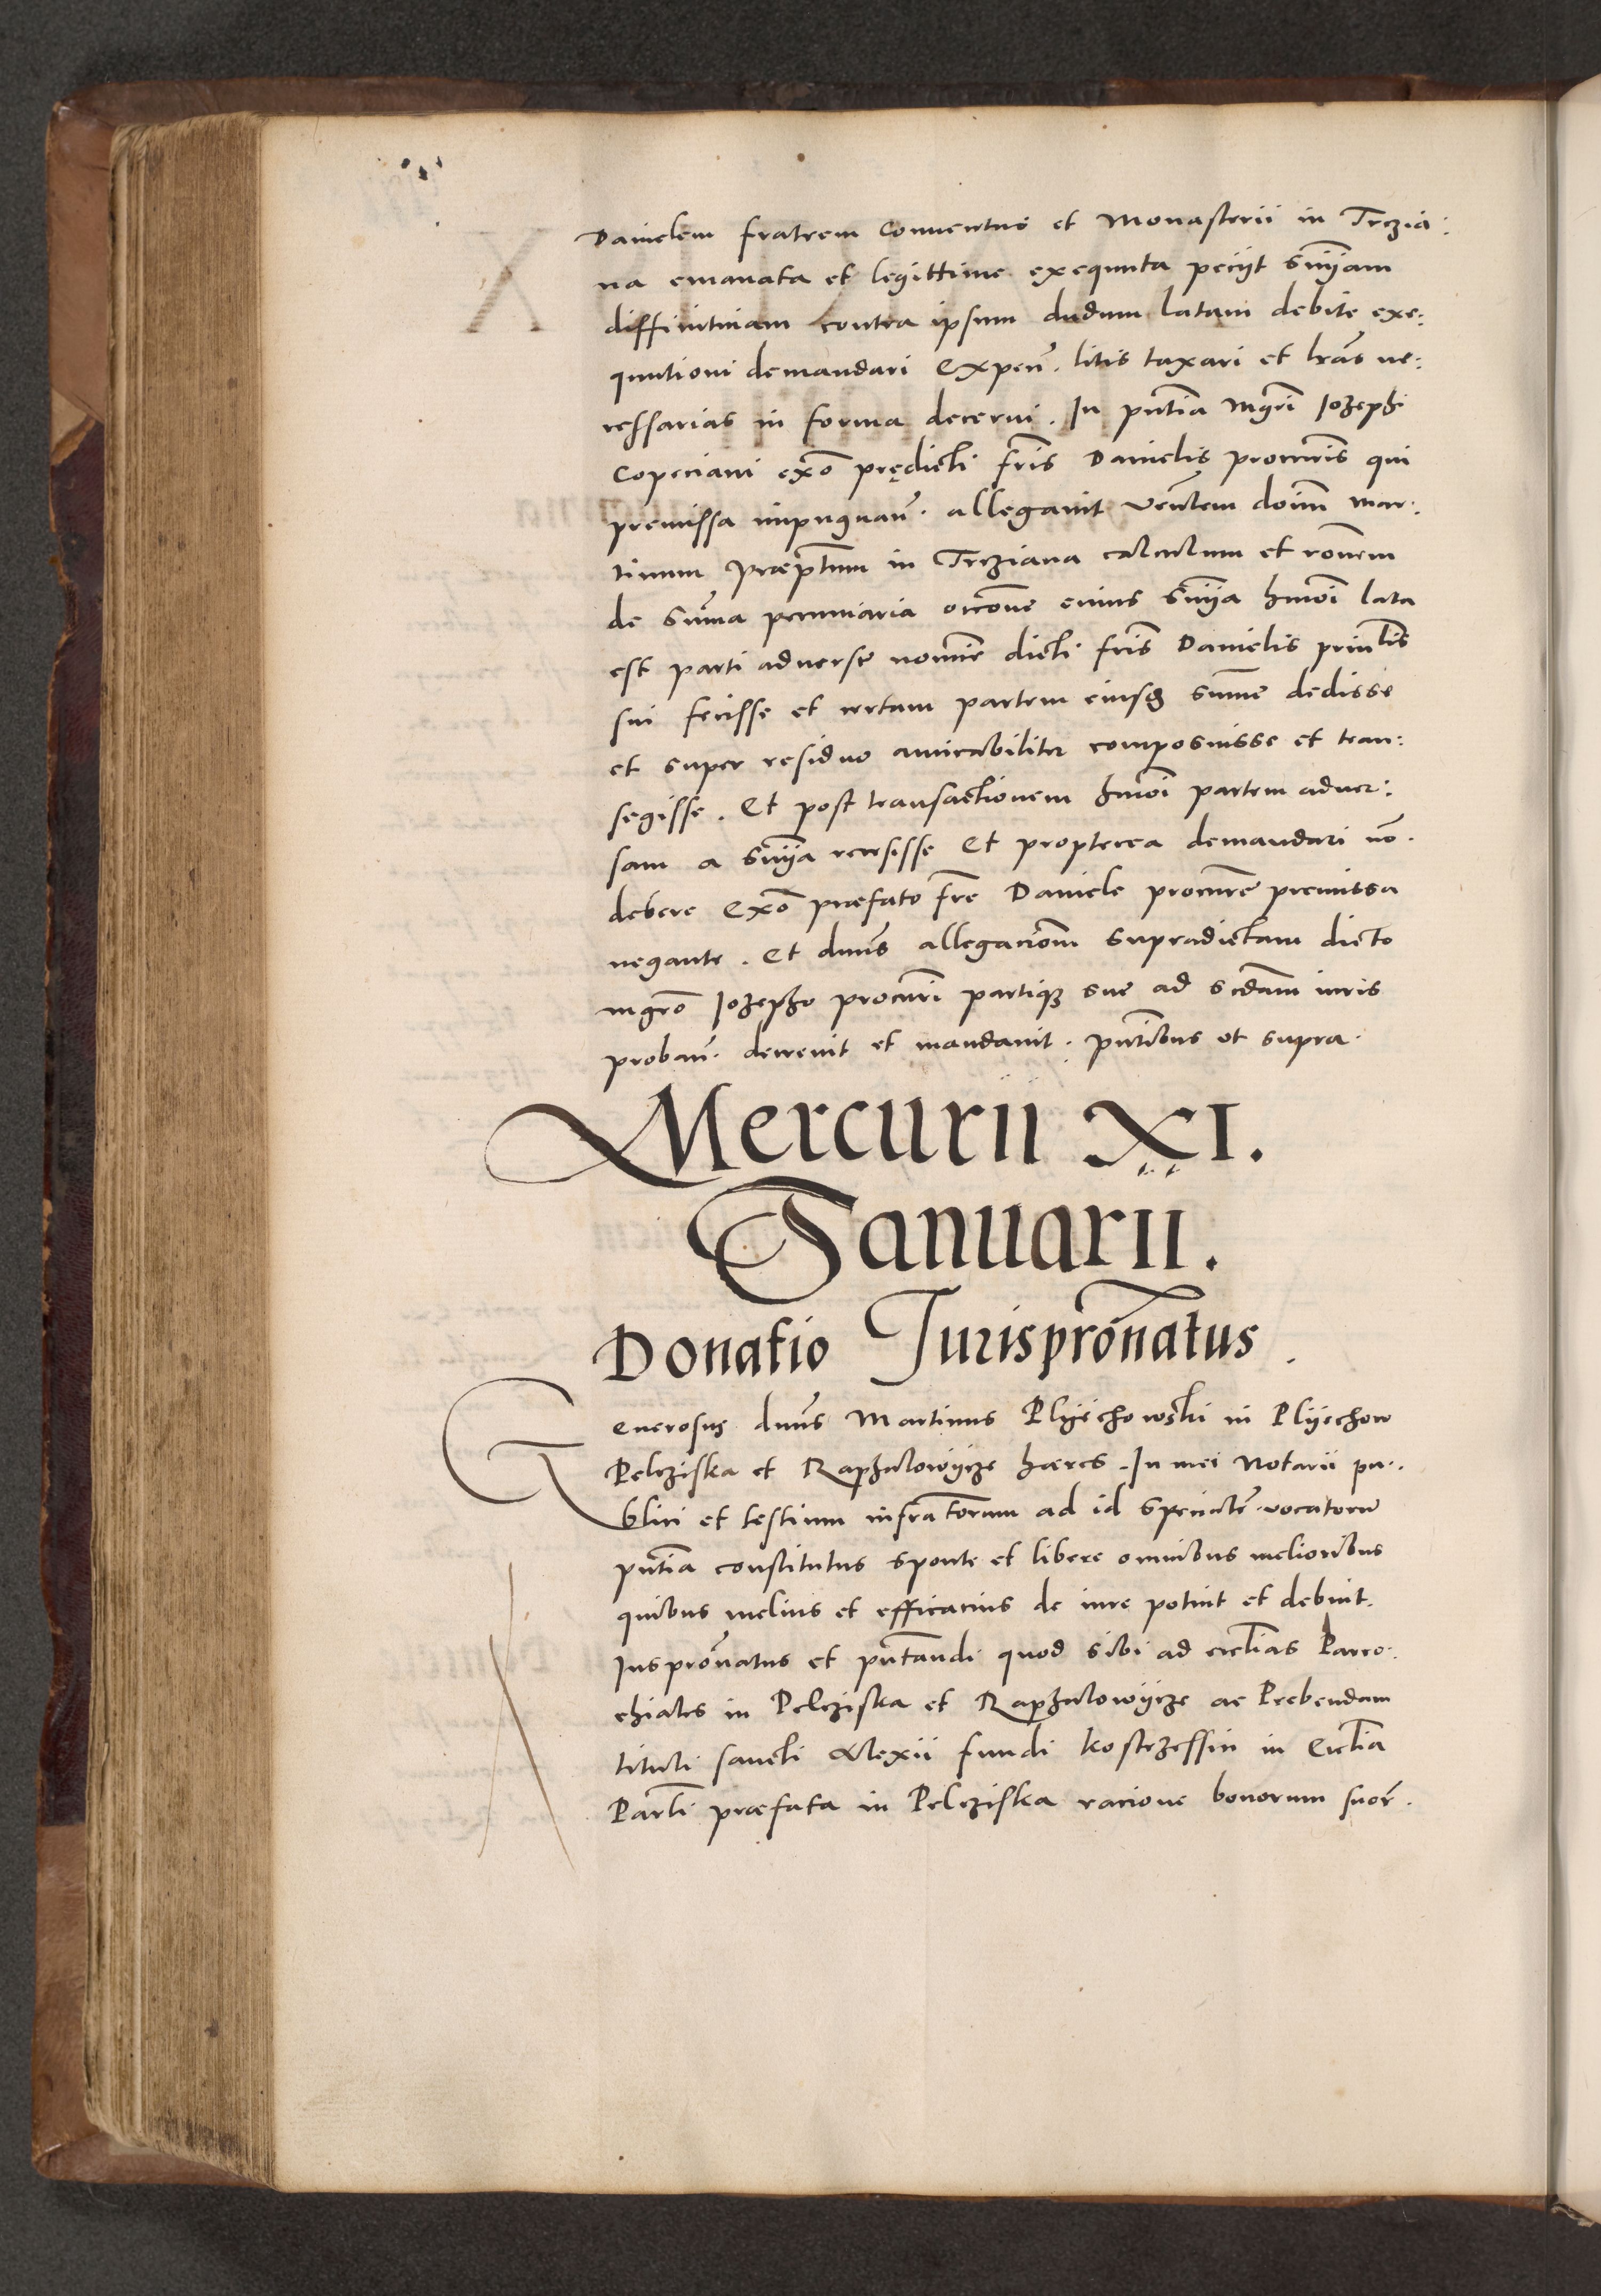 Danielem fratrem Conuentus et Monasterii in Trzia:
na emanata et legittime exequuta peciit sn̄iam
diffinitiuam contra ipsum dudum latam debite exe:
quutioni demandari Expen̄. litis taxari et lr̄as ne:
cessarias in forma decerni. In pn̄tia Mgr̄i Jozephi
Copeciani exo᷄ prędicti fr̄is Danielis procur̄is qui
premissa impugnan̄. allegauit Ven̄lem doīm Mar:
tinum Præp̄tum in Trziana calculum et rōnem
de sum̄a pecuniaria occ̄one cuius sn̄ia hmōi lata
est parti aduerse nomīe dicti fr̄is Danielis prin̄lis
sui fecisse et certam partem eiusq sum̄e dedisse
et super residuo amicabiliter composuisse et tran:
segisse. Et post transactionem hmōi partem aduer:
sam a sn̄ia recessisse Et propterea demandari nō.
debere Exō præfato fr̄e Daniele procur̄e premissa
negante. Et dn̄us allegaciōm supradictam dicto
mgr̄o Jozepho procur̄i partiq sue ad scdām iuris
proban̄. decreuit et mandauit. pn̄tibus ut supra.
Mercurii XI.
Januarii.
Donatio Jurispr̄onatus.
Generosus dn̄us Martinus Plyechowski in Plyechow
Pelcziska et Raphalowycze hæres. In mei Notarii pu:
blici et testium infrā torum ad id specialr̄ vocatorū
pn̄tia constitutus sponte et libere omnibus melioribus
quibus melius et efficacius de iure potuit et debuit.
Juspr̄onatus et pn̄tandi quod sibi ad eccl̄ias Parro:
chiales in Pelcziska et Raphalowycze ac Prebendam
tituli sancti Alexii fundi kostczessin in Eccl̄ia
Parrli præfata in Pelcziska racione bonorum suor̄.